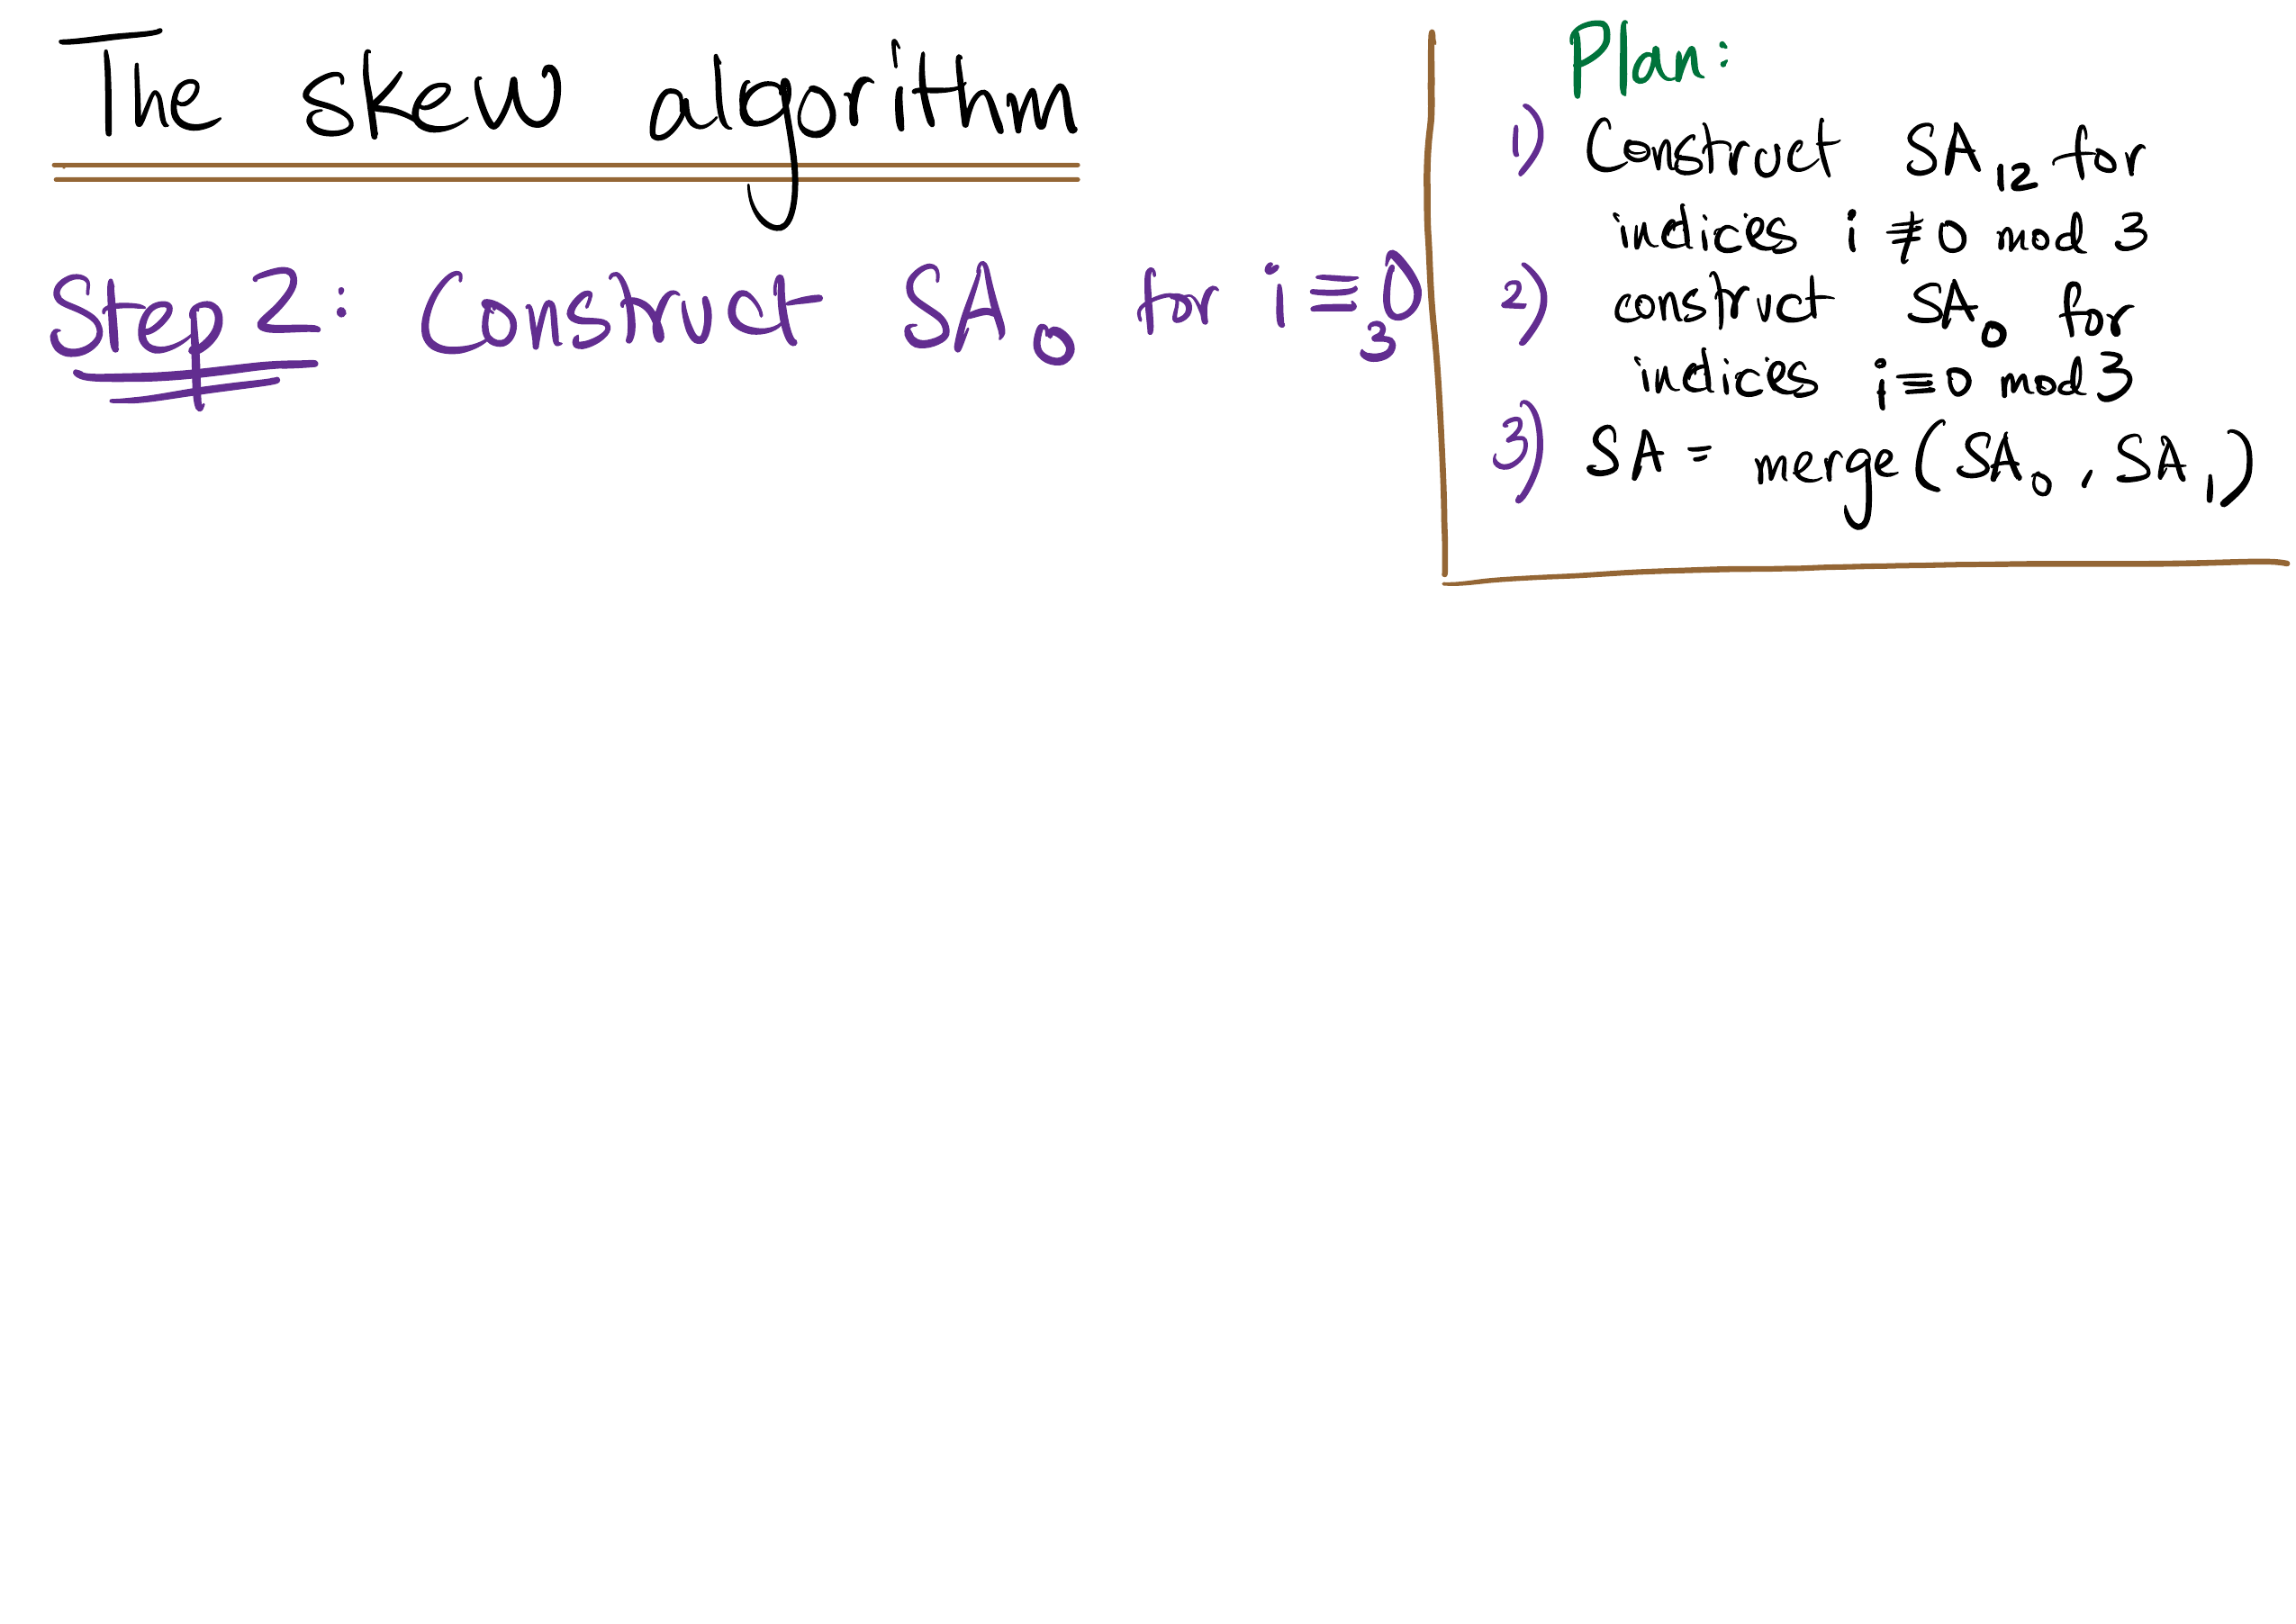 The skew algorithm
Step 2: Construct SA₀ for i ≡₃ 0
Plan:
1) Construct SA₁₂ for
indices i ≢ 0 mod 3
2) construct SA₀ for
indices i ≡ 0 mod 3
3) SA = merge(SA₀, SA₁)